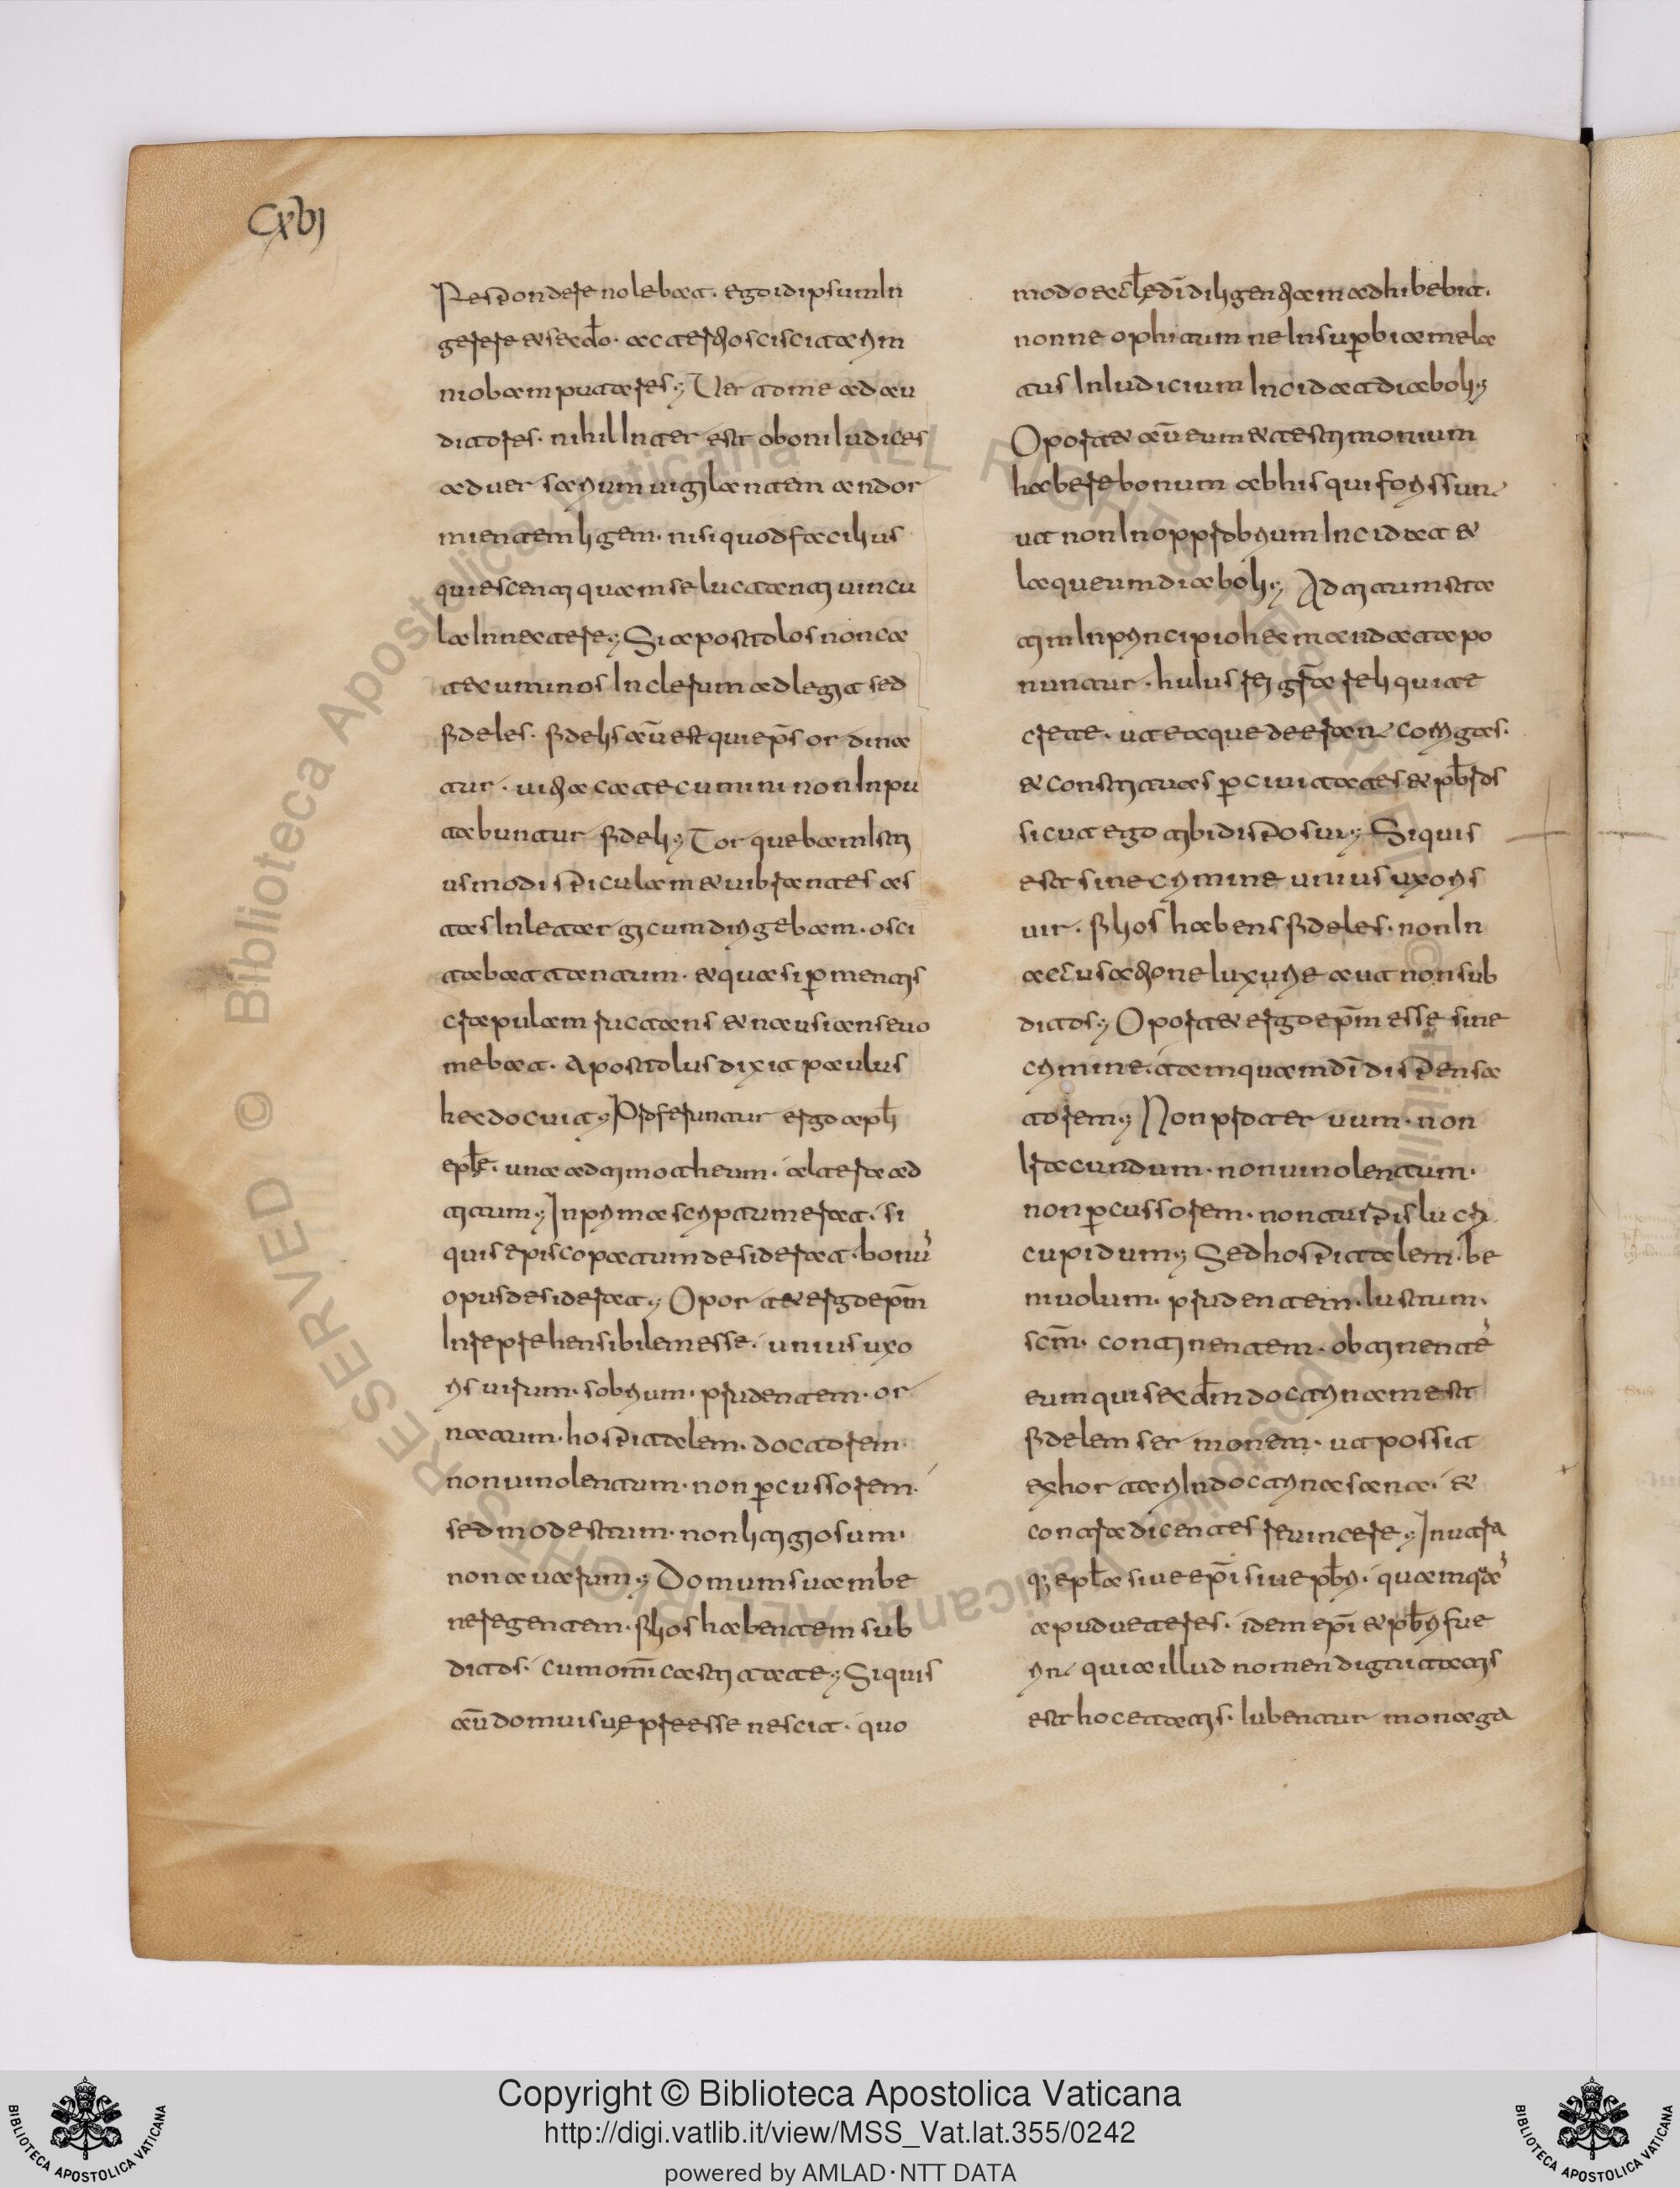 Cxbj
Respondere nolebat. ego id ipsum In
gerere et secl̄o. ac tertio sciscitari in
niobam putares; Vertor me ad au
ditores. nihil Inter est o boni Iudices
ad uersarium uigilantem an dor
mientem ligem. nisi quod facilius
quiescenti quam se luctanti uincu
la Innectere; Si apostolos non ca
tecuminos In clerum adlegit sed
fideles. fidelis aū est qui ep̄s ordina
tur. uitia catecumini non Inpu
tabuntur fideli; Torquebam Isti
usmodi spiculam et uibrantes as
tas In letargicum dirigebam. osci
tabat tantum. et quasi p mentis
crapulam ructans et nausians euo
mebat. Apostolus dixit paulus
hec docuit; Proferuntur ergo apl̄i
epl̄e. una ad timotheum. altera ad
titum; In prima scriptum erat. si
quis episcopatum desiderat. bonū
opus desiderat; Oportet ergo ep̄m
Inreprehensibilem esse. unius uxo
ris uirum. sobrium. prudentem. or
natum. hospitalem. doctorem.
non uinolentum. non pcussorem.
sed modestum. non litigiosum.
non auarum; Domum suam be
ne regentem. filios habentem sub
ditos. cum om̄i castitate; Si quis
aū domui suę preesse nescit. quo
modo eccl̄ę dī diligentiam adhibebit.
non neophitum ne In superbia mela
tus In Iudicium Incidat diaboli;
Oportet aū eum et testimonium
habere bonum ab his qui foris sun
ut non In opprobrium Incidat et
laqueum diaboli; Ad titum ista
tim In principio hec mandata po
nuntur. huius rei gr̄a reliqui te
crete. ut ea que deeran corrigas.
et constituas p ciuitates et pb̄ros
sicut ego tibi disposui; Si quis
est sine crimine unius uxoris
uir. filios habens fideles. non In
accusatione luxurie aut non sub
ditos; Oportet ergo ep̄m esse sine
crimine. tamquam dī dispensa
torem; Non proteruum. non
Iracundum. non uinolentum.
non pcussorem. non turpis lucri
cupidum; Sed hospitalem. be
niuolum. prudentem. Iustum.
scm̄. continentem. obtinentē
eum qui secd̄m doctrinam est
fidelem sermonem. ut possit
exhortari In doctrina sana. et
contradicentes reuincere; In utra
q; epl̄a siue ep̄i siue pb̄ri. quamquā
apud ueteres. idem ep̄i et pb̄ri fue
rin quia illud nomen dignitatis
est hoc etatis. Iubentur monoga
Copyright © Biblioteca Apostolica Vaticana
http://digi.vatlib.it/view/MSS_Vat.lat.355/0242
powered by AMLAD·NTT DATA
BIBLIOTECA APOSTOLICA VATICANA
BIBLIOTECA APOSTOLICA VATICANA